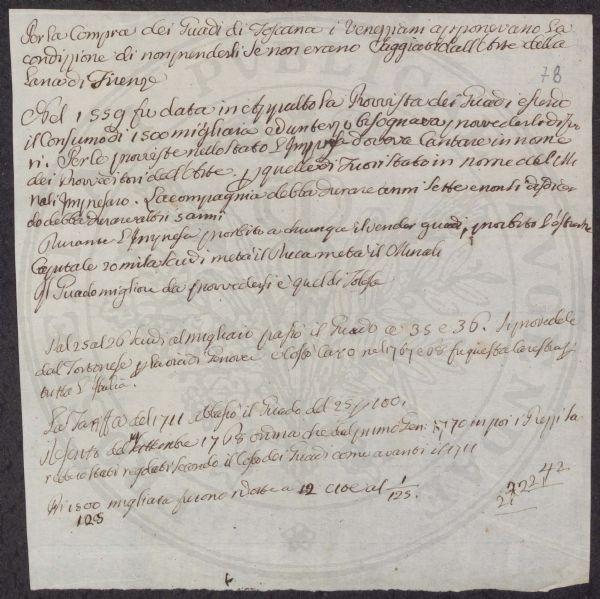 Per la Compra dei Guadi di Toscana i Veneziani apponevano la
condizione di non prenderli se non erano saggiati dall'Arte della
Lana di Firenze
78
Nel 1559 fu data in Appalto la Provvista dei Guadi essendo
il Consumo di 1500 migliara ed un terzo bisognava provvederlo di fuo
ri. Per le provviste nello stato l'Impresa doveva Cantare in nome
dei Provveditori dell'Arte, e p quelle di Fuori stato in nome del
nali Impresario. La compagnia debba durare anni sette e non si disdicen
do debba durare altri 5 anni
Durante l'Impresa proibito a chiunque il vender guadi, proibito l'estrarre
Capitale 20 mila scudi metà il Ricca metà il Munali
Il Guado migliore da provvedersi è quel di Tolosa
Dal 25 al 26 scudi al migliaio passò il Guado a 35 e 36. Si provvedeva
dal Tortonese p la via di Genova e costò Caro nel 1767 e 68 fu questa carestia p
tutta l'Italia.
La Tariffa del 1711 abbassò il Guado del 25 p 100.
Rescritto del Settembre 1768 ordina che dal primo Gen: 1770 in poi i Prezzi sa
rebbero stati regolati secondo il Costo dei Guadi come avanti il 1711
Di 1500 migliara furono ridotte a 12 cioè al 1/125.
125
42
22
27
2